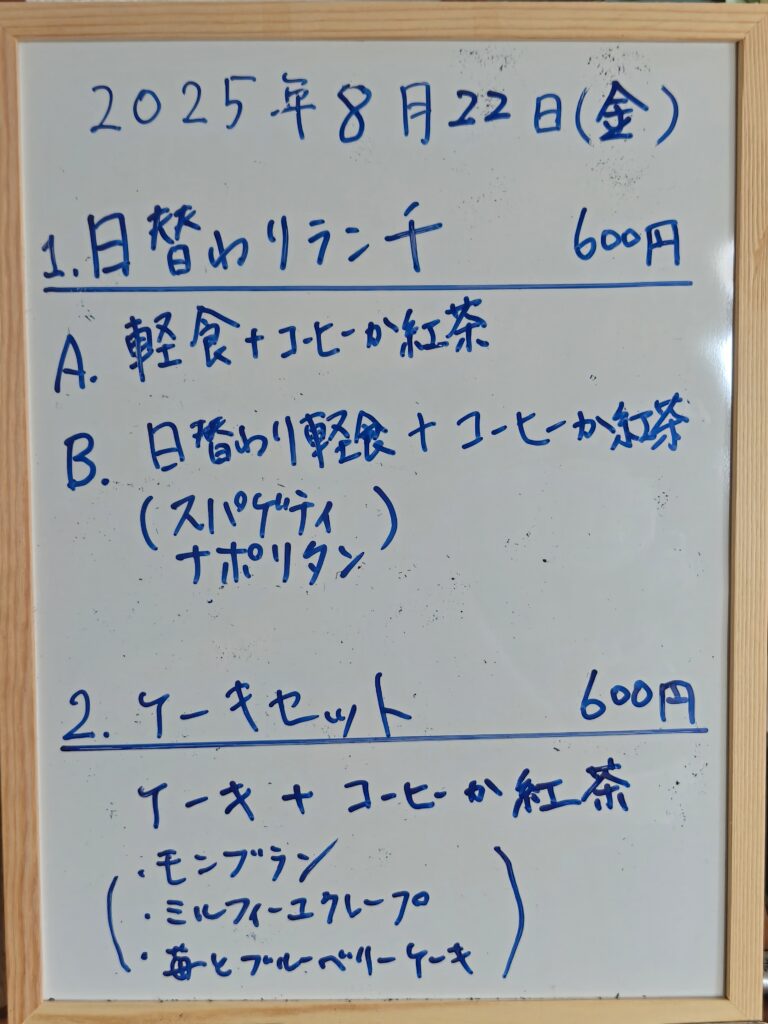 2025年8月22日(金)
1.日替わりランチ 600円
A. 軽食+コーヒーか紅茶
B. 日替わり軽食+コーヒーか紅茶
(スパゲティ
ナポリタン)
2.ケーキセット 600円
ケーキ+コーヒーか紅茶
(・モンブラン
・ミルフィーユクレープ
・苺とブルーベリーケーキ)